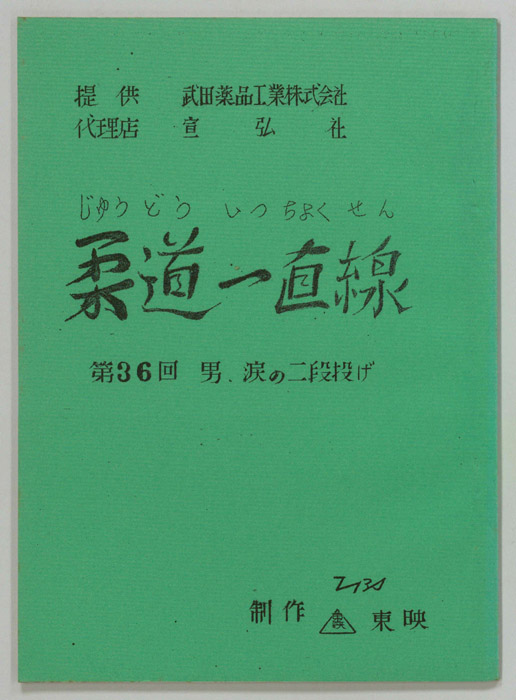 提供 武田薬品工業株式会社
代理店 宣弘社
じゅうどう いっちょくせん
柔道一直線
第36回 男、涙の二段投げ
制作 東映